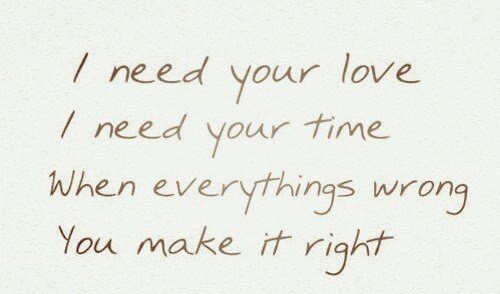 I need your love
I need your time
When everythings wrong
You make it right